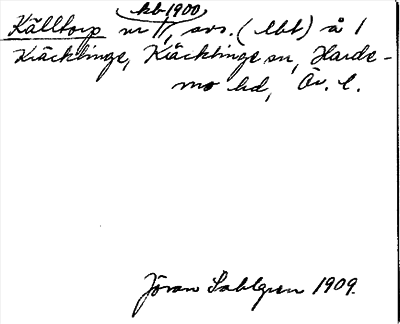 kb 1900
Källtorp nr 11, svs. (lbt) å 1
Kräcklinge, Kräcklinge sn, Harde-
mo hd, Ör. l.
Jöran Sahlgren 1909.